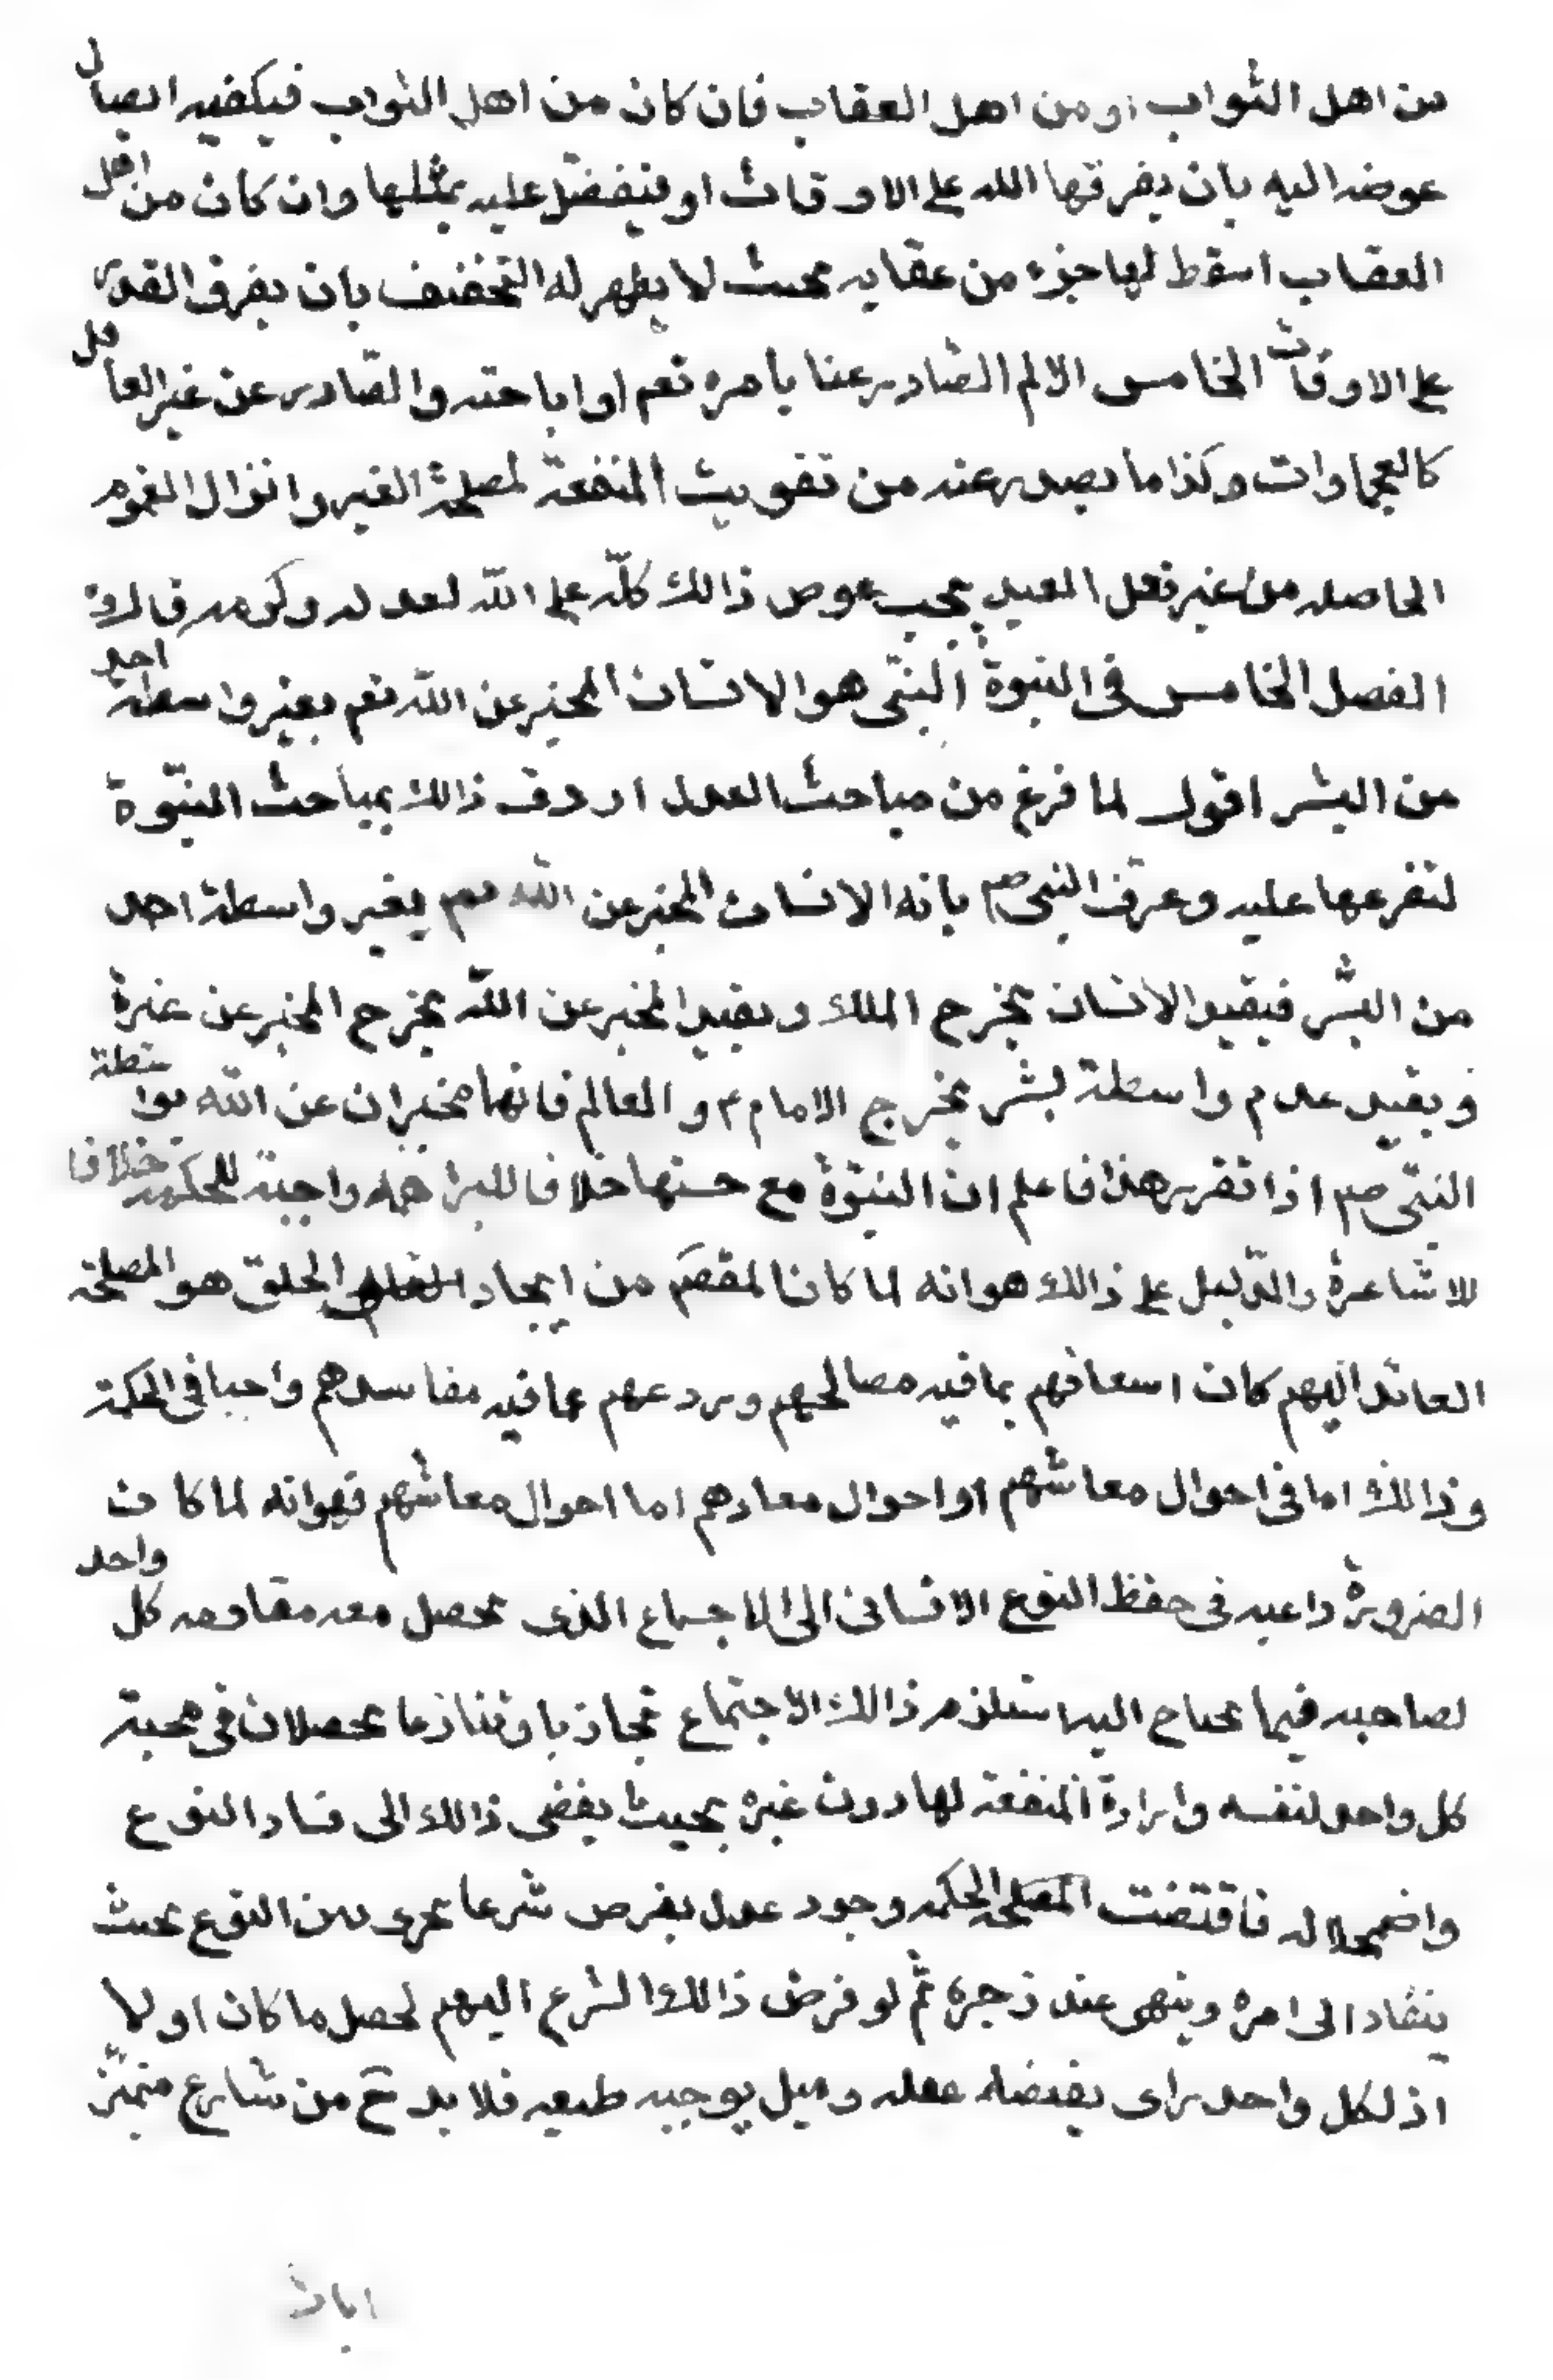 من اهل الثواب او من اهل العقاب فان كان من اهل الثواب فيكفيه ايصال
عوضه اليه بان يفرقها الله على الاوقات او يتفضل عليه بمثلها وان كان من اهل
العقاب اسقط لها جزء من عقابه بحيث لا يظهر له التخفيف بان يفرق القدر
على الاوقات الخامس الالم الصادر عنا بامره تعم او اباحته والصادر عن غير العاقل
كالعجماوات وكذا ما يصدر عنه من تفويت المنفعة لمصلحة الغير وانزال الغموم
الحاصله من غير فعل العبد يجب عوض ذالك كلّه على الله لعدله وكرمه قال
الفصل الخامس فى النبوة النبّى هو الانسان المخبر عن الله تعم بغير واسطة احد
من البشر اقول لما فرغ من مباحث العدل اردف ذالك بمباحث النبّوة
لتفرعها عليه وعرّف النبى صم بانه الانسان المخبر عن الله تعم بغير واسطة احد
من البشر فبقيد الانسان يخرج الملك وبقيد المخبر عن الله يخرج المخبر عن غيره
وبقيد عدم واسطة بشر يخرج الامام ع والعالم فانهما مخبران عن الله بواسطة
النبّى صم اذا تقرر هذا فاعلم ان النبوّة مع حسنها خلافا للبراهمه واجبة للحكمة خلافا
للاشاعرة والدّليل على ذالك هو انه لما كان المقصم من ايجاد الخلق هو المصلحة
العائد اليهم كان اسعافهم بما فيه مصالحهم وردعهم عما فيه مفاسدهم واجبا فى الحكمة
وذالك اما فى احوال معاشهم او احوال معادهم اما احوال معاشهم فهو انه لما كان
الضرورة داعيه فى حفظ النوع الانسانى الى الاجتماع الذى يحصل معه مقاومه كل واحد
لصاحبه فيما يحتاج اليه استلزم ذالك الاجتماع تجاذبا وتنازعا يحصلان فى محبة
كل واحد لنفسه وارادة المنفعة لها دون غيره بحيث يفضى ذالك الى فساد النوع
واضمحلاله فاقتضت الحكمه وجود عدل يفرض شرعا يجرى بين النوع بحيث
ينقاد الى امره وينهى عند زجره ثم لو فرض ذالك الشرع اليهم لحصل ما كان اولا
اذ لكل واحد راى يقتضيه عقله وميل يوجبه طبعه فلا بد ح من شارع متميّز